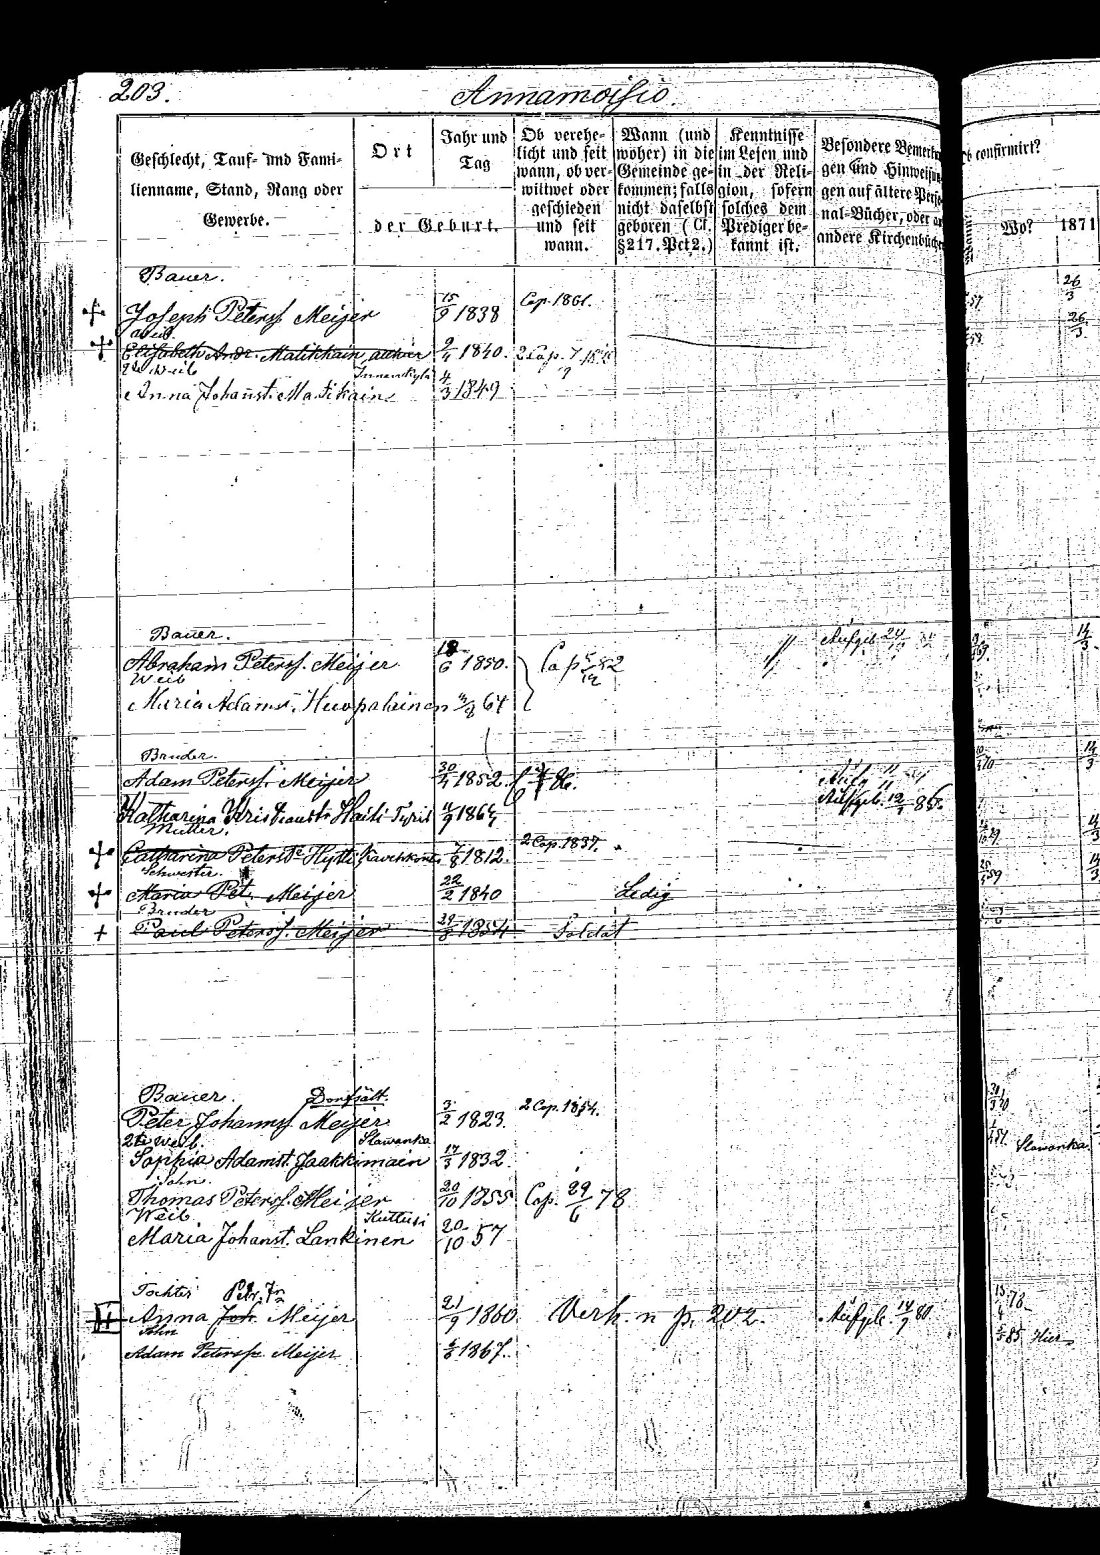 203.
Annamoisio.
Geschlecht, Tauf- und Fami-
lienname, Stand, Rang oder
Gewerbe.
Ort
Jahr und
Tag
der Geburt.
Ob verehe-
licht und seit
wann, ob ver-
wittwet oder
geschieden
und seit
wann.
Wann (und
woher) in die
Gemeinde ge-
kommen; falls
nicht daselbst
geboren (Cf.
§217. Pct. 2.)
Kenntnisse
im Lesen und
in der Reli-
gion, sofern
solches dem
Prediger be-
kannt ist.
Besondere Bemerku
gen und Hinweisun
gen auf ältere Perso
nal-Bücher, oder a
andere Kirchenbüche
confirmirt?
Wo?
1871
Bauer.
Joseph Peterss. Meijer 15/9 1838 Cop. 1861. 26/3
Weib
Elisabeth Andr. Matikkain 9/4 1840. 2 Cop. 26/3
2te Weib
Anna Johanst. Matikain 4/3 1849
Bauer.
Abraham Peterss. Meijer 18/6 1850. Cap 82 Aufgeb. 14/3
Weib
Maria Adamst. Huopalainen 64
Bruder.
Adam Peterss. Meijer 30/4 1852. 86. 14/3
Katharina Haiti 1864 Aufgeb. 86.
Mutter.
Catharina Peterst. Hytti 7/8 1812. 2 Cop. 1837. 14/3
Schwester.
Maria Pet. Meijer 22/2 1840 Ledig 14/3
Bruder
Paul Peterss. Meijer 1854 Soldat
Bauer.
Peter Johanns. Meijer 3/2 1823. 2 Cop. 1854.
2te Weib. Slawanka
Sophia Adamst. Jaakkimain 17/3 1832. Slawanka.
Sohn.
Thomas Peterss. Meijer 20/10 1855 Cop. 29/6 78
Weib Kuttusi
Maria Johanst. Lankinen 20/10 57
Tochter Petr.
Anna Joh. Meijer 21/9 1860 Verh. n p. 202. Aufgeb. 80 78
Sohn
Adam Peterss. Meijer 1867. 85. Hier